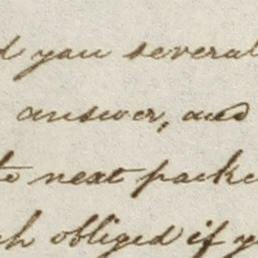 d you several
answer, and
to next packe
ch obliged if y